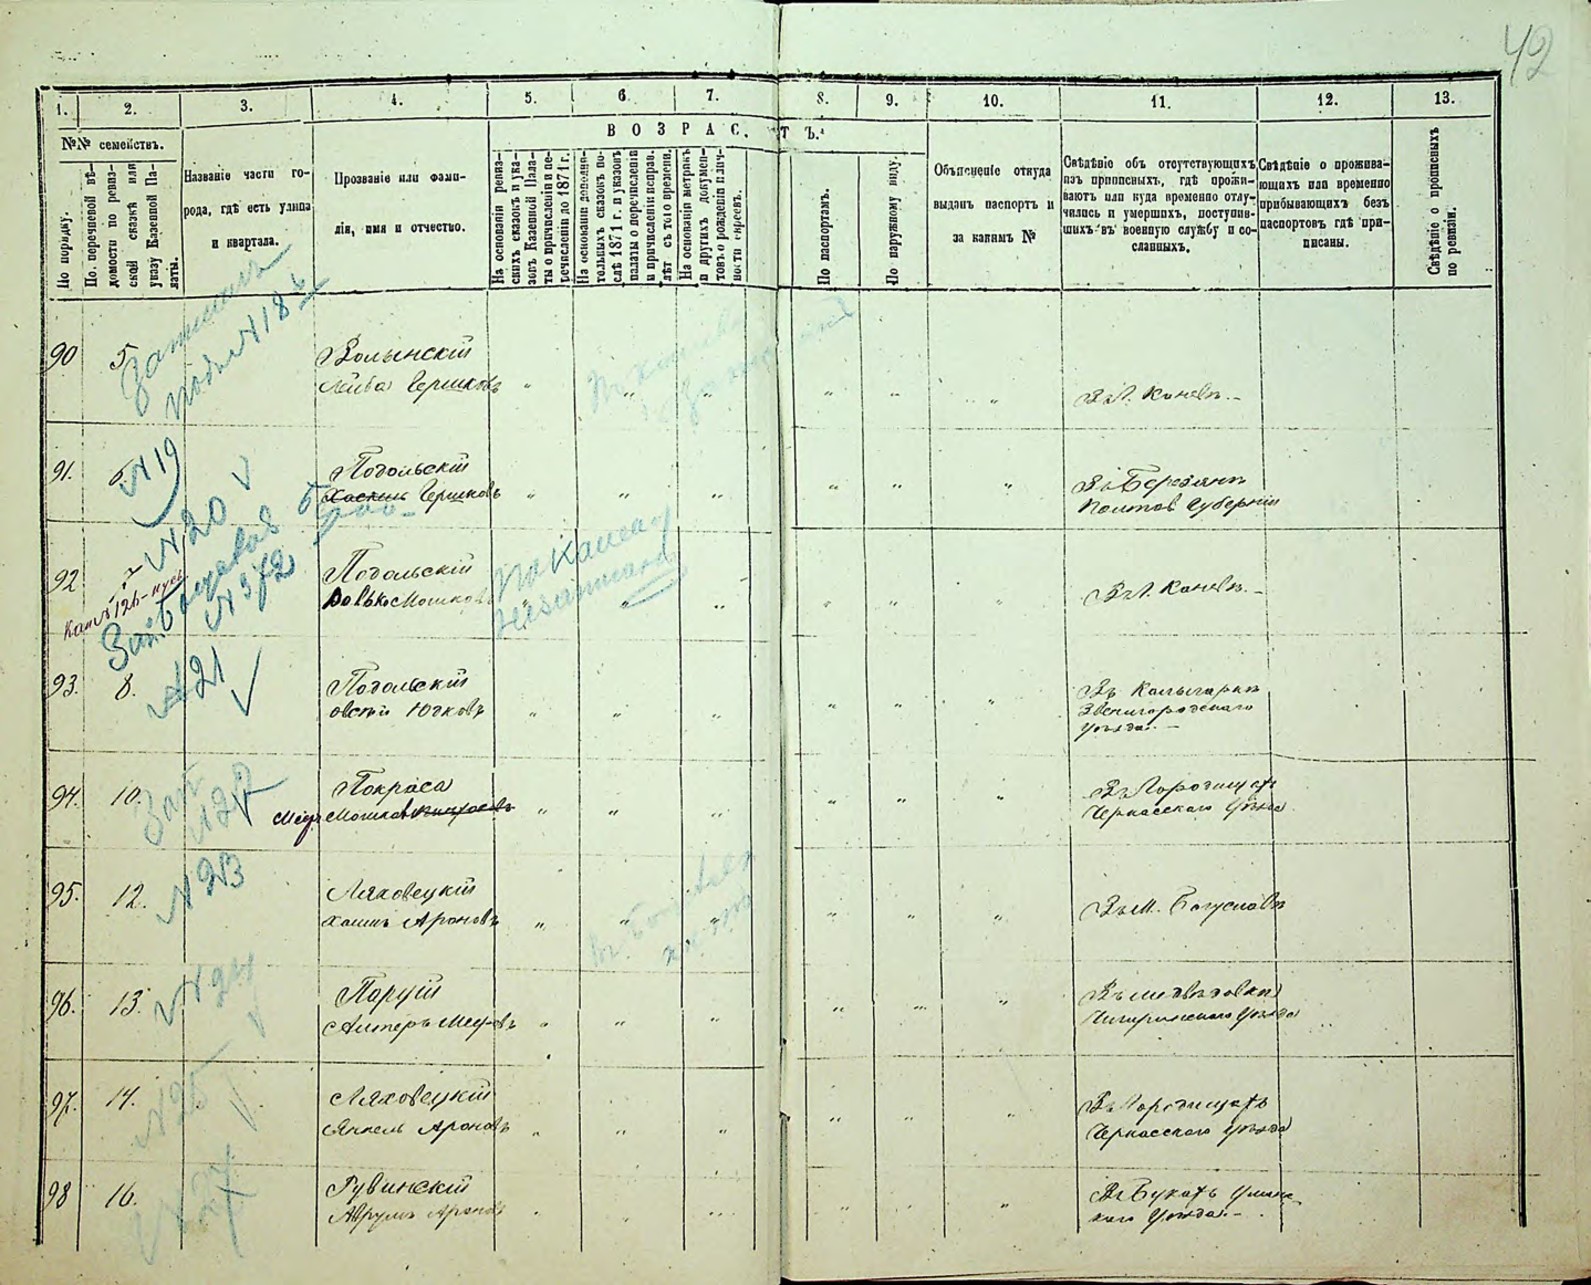 42
1. 2. 3. 4. 5. 6. 7. 8. 9. 10. 11. 12. 13.
№№ семействъ.
ВОЗРАСТЪ.
По порядку.
По перечневой вѣ-
домости по ревиз-
ской сказкѣ или
указу Казенной Па-
латы.
Названіе части го-
рода, гдѣ есть улица
и квартала.
Прозваніе или фами-
лія, имя и отчество.
На основаніи ревиз-
скихъ сказокъ и ука-
зовъ Казенной Пала-
ты о причисленіи и пе-
речисленіи до 1871 г.
На основаніи дополни-
тельныхъ сказокъ по-
слѣ 1871 г. и указовъ
палаты о перечисленіи
и причисленіи исправ.
лѣт съ того времени.
На основаніи метрикъ
и другихъ докумен-
товъ о рожденіи и лич-
ности евреевъ.
По паспортамъ.
По наружному виду.
Объясненіе откуда
выданъ паспортъ и
за какимъ №
Свѣдѣніе объ отсутствующихъ
изъ приписныхъ, гдѣ прожи-
ваютъ или куда временно отлу-
чились и умершихъ, поступив-
шихъ въ военную службу и со-
сланныхъ.
Свѣдѣніе о прожива-
ющихъ или временно
прибывающихъ безъ
паспортовъ гдѣ при-
писаны.
Свѣдѣніе о прописныхъ
по ревизіи.
Записанъ
подъ №18
90 5. Волынскій
Лейба Гершковъ
Въ г. Каневѣ.
91. 6. №19 Подольскій
Хаскель Гершковъ
Въ Березани
Полтав Губерніи
№20
92 7 Подольскій
Вовько Мошковъ
Въ г. Каневѣ.
№372
по Каневу
незаписанъ
93. 8. №21 Подольскій
Овсѣй Юдковъ
Въ Калыгаркѣ
Звенигородскаго
Уѣзда.
94. 10. Покраса
Мошков
Въ Городищахъ
Черкасскаго Уѣзда
95. 12. №23 Ляховецкій
Хаимъ Ароновъ
Въ М. Богуславѣ
96. 13. №24 Паруій
Алтеръ
Въ Медвѣдовкѣ
Чигиринскаго Уѣзда
97. 14. №25 Ляховецкій
Янкель Ароновъ
Въ Городищахъ
Черкасскаго Уѣзда
98 16. Рувинскій
Аврумъ Аронов
Въ Букахъ Уман-
каго Уѣзда.